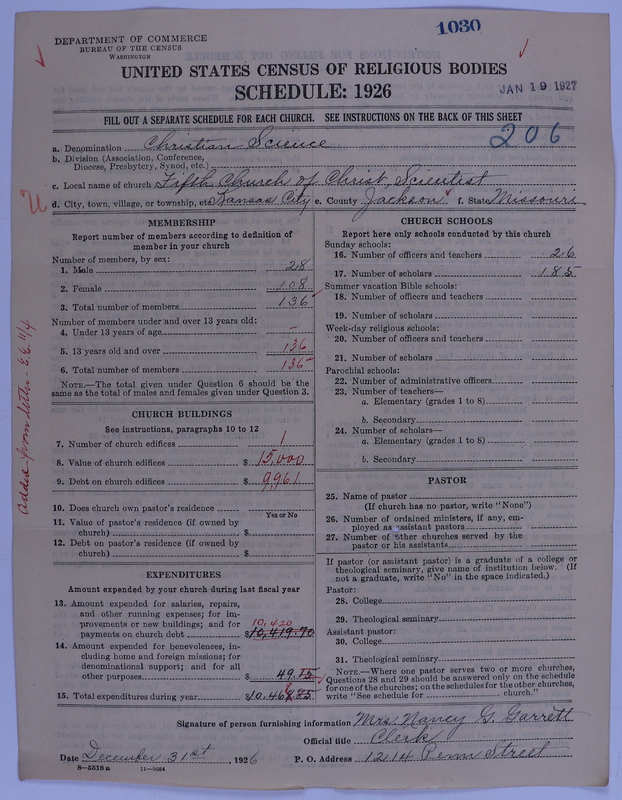 1030
DEPARTMENT OF COMMERCE
BUREAU OF THE CENSUS
WASHINGTON
UNITED STATES CENSUS OF RELIGIOUS BODIES
SCHEDULE: 1926
JAN 19 1927
FILL OUT A SEPARATE SCHEDULE FOR EACH CHURCH. SEE INSTRUCTIONS ON THE BACK OF THIS SHEET
206
a. Denomination Christian Science
b. Division (Association, Conference, Diocese, Presbytery, Synod, etc.)
c. Local name of church Fifth Church of Christ, Scientist
d. City, town, village, or township, etc. Kansas City e. County Jackson f. State Missouri
MEMBERSHIP
Report number of members according to definition of member in your church
Number of members, by sex:
1. Male 28
2. Female 108
3. Total number of members 136
Number of members under and over 13 years old:
4. Under 13 years of age –
5. 13 years old and over 136
6. Total number of members 136
NOTE.—The total given under Question 6 should be the same as the total of males and females given under Question 3.
CHURCH BUILDINGS
See instructions, paragraphs 10 to 12
7. Number of church edifices 1
8. Value of church edifices $ 15,000
9. Debt on church edifices $ 9961
10. Does church own pastor's residence
Yes or No
11. Value of pastor's residence (if owned by church) $
12. Debt on pastor's residence (if owned by church) $
EXPENDITURES
Amount expended by your church during last fiscal year
13. Amount expended for salaries, repairs, and other running expenses; for improvements or new buildings; and for payments on church debt $ 10,419.70
10,420
14. Amount expended for benevolences, including home and foreign missions; for denominational support; and for all other purposes $ 49.15
15. Total expenditures during year $ 10,468.85
CHURCH SCHOOLS
Report here only schools conducted by this church
Sunday schools:
16. Number of officers and teachers 26
17. Number of scholars 185
Summer vacation Bible schools:
18. Number of officers and teachers
19. Number of scholars
Week-day religious schools:
20. Number of officers and teachers
21. Number of scholars
Parochial schools:
22. Number of administrative officers
23. Number of teachers—
a. Elementary (grades 1 to 8)
b. Secondary
24. Number of scholars—
a. Elementary (grades 1 to 8)
b. Secondary
PASTOR
25. Name of pastor
(If church has no pastor, write "None")
26. Number of ordained ministers, if any, employed as assistant pastors
27. Number of other churches served by the pastor or his assistants
If pastor (or assistant pastor) is a graduate of a college or theological seminary, give name of institution below. (If not a graduate, write "No" in the space indicated.)
Pastor:
28. College
29. Theological seminary
Assistant pastor:
30. College
31. Theological seminary
NOTE.—Where one pastor serves two or more churches, Questions 28 and 29 should be answered only on the schedule for one of the churches; on the schedules for the other churches, write "See schedule for church."
Signature of person furnishing information Mrs. Nancy G. Garrett
Official title Clerk
Date December 31st, 1926 P. O. Address 1214 Penn Street
8—5518 a 11—9084
Added from letter